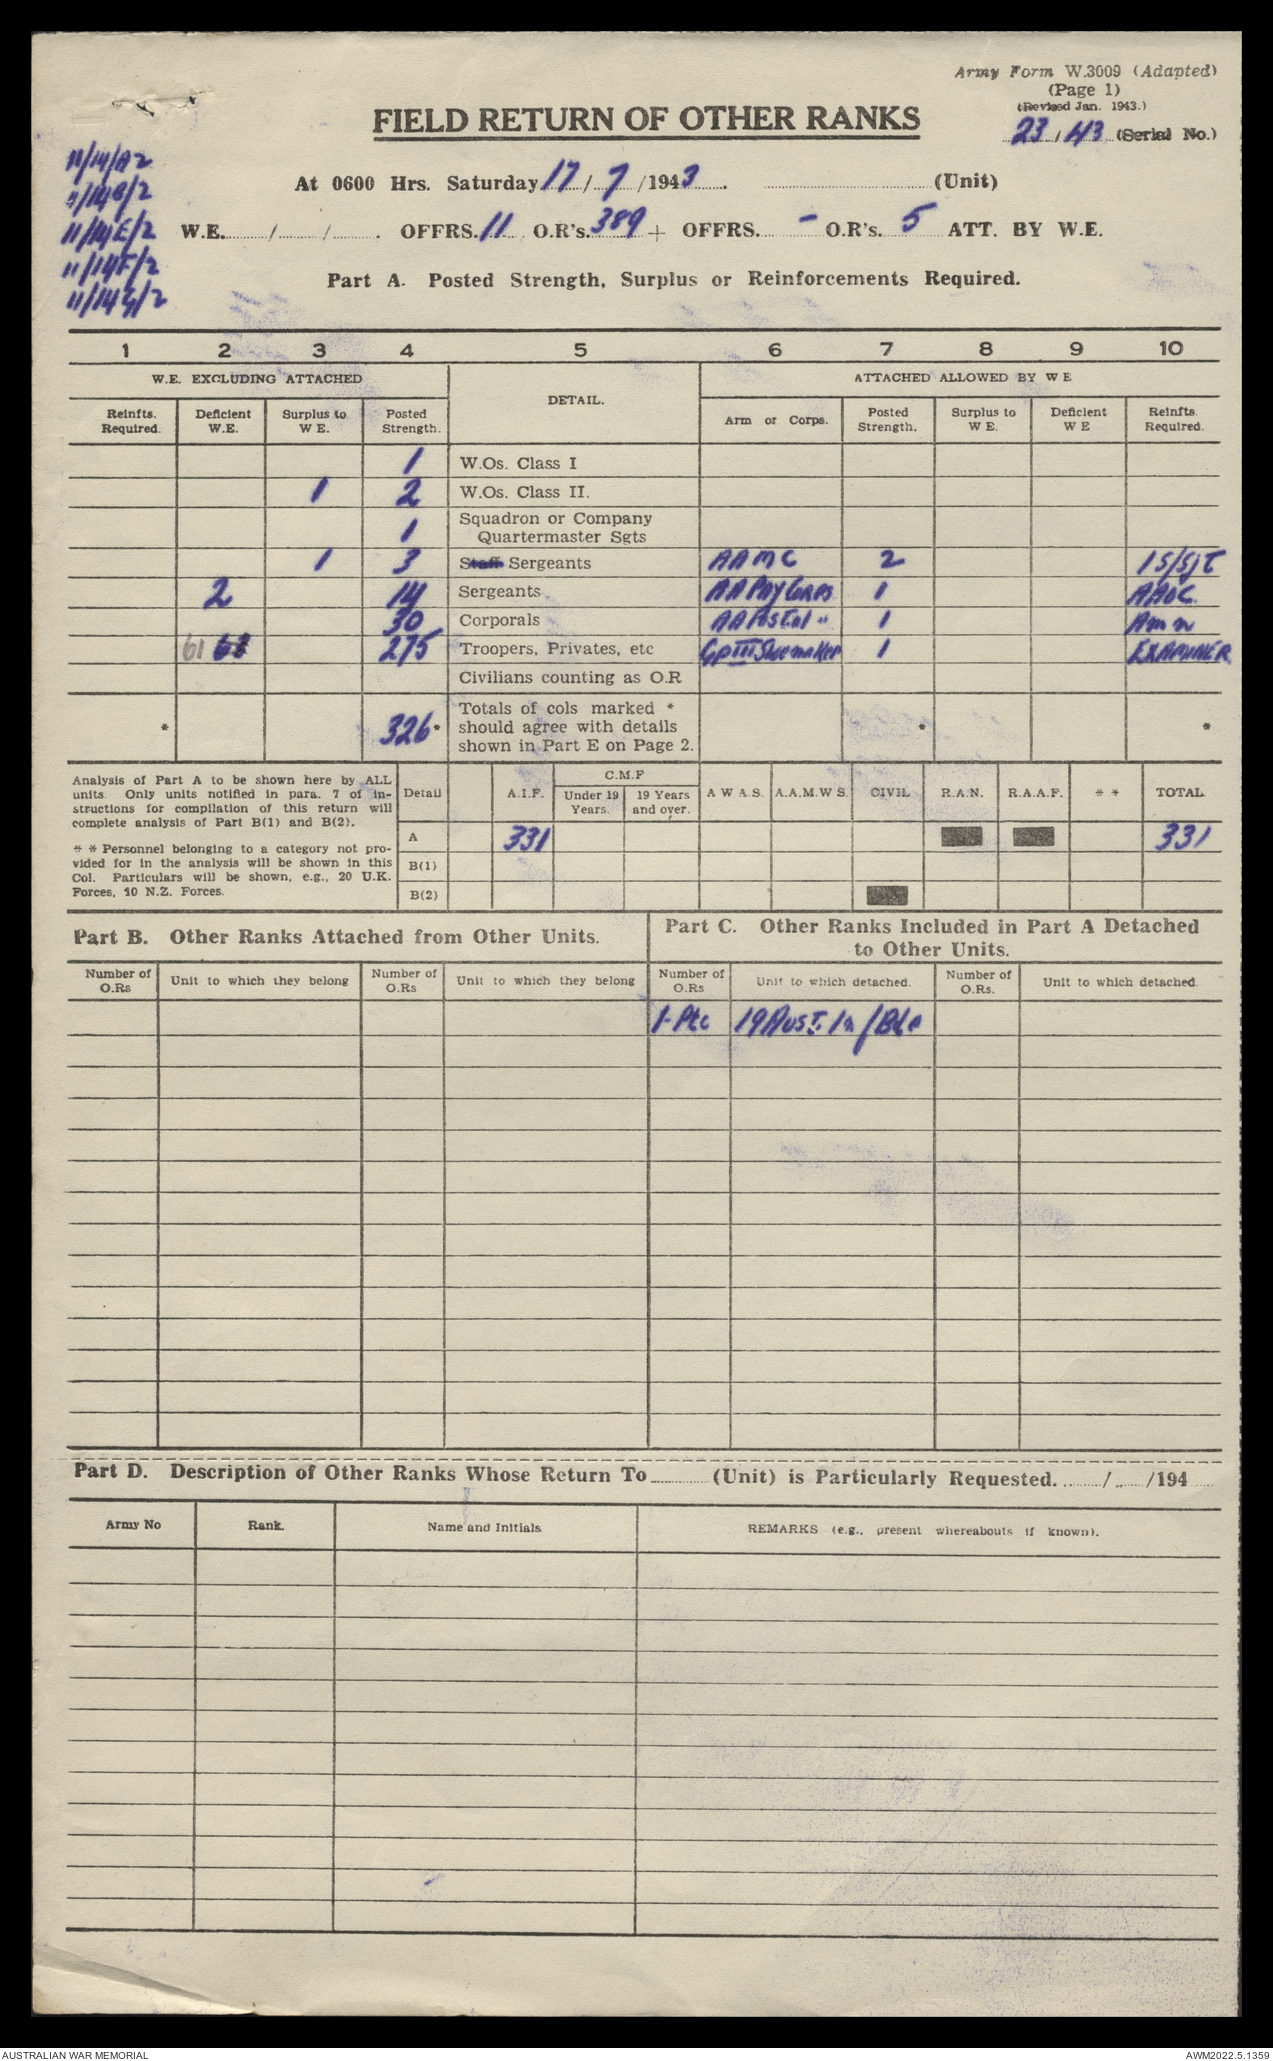 Army Form W.3009 (Adapted)
(Page 1)
(Revised Jan. 1943.)
23/43 (Serial No.)
FIELD RETURN OF OTHER RANKS
11/14/A2
11/14B/2
11/14E/2
11/14F/2
11/14G/2
At 0600 Hrs. Saturday 17/7/1943. (Unit)
W.E. / / . OFFRS. 11 O.R's. 389 + OFFRS. - O.R's. 5 ATT. BY W.E.
Part A. Posted Strength, Surplus or Reinforcements Required.
1 2 3 4 5 6 7 8 9 10
W.E. EXCLUDING ATTACHED DETAIL. ATTACHED ALLOWED BY W E
Reinfts. Required. Deficient W.E. Surplus to W E. Posted Strength. Arm or Corps. Posted Strength. Surplus to W E. Deficient W E Reinfts. Required.
1 W.Os. Class I
1 2 W.Os. Class II.
1 Squadron or Company Quartermaster Sgts
1 3 Staff Sergeants AAMC 2 1 S/Sjt
2 14 Sergeants AA Pay Corps 1 AAOC
30 Corporals AA Postal " 1 Amn
61 275 Troopers, Privates, etc Gp III Shoemaker 1 EXAMINER
Civilians counting as O.R
* 326* Totals of cols marked * should agree with details shown in Part E on Page 2. * *
Analysis of Part A to be shown here by ALL
units. Only units notified in para. 7 of in-
structions for compilation of this return will
complete analysis of Part B(1) and B(2).
* * Personnel belonging to a category not pro-
vided for in the analysis will be shown in this
Col. Particulars will be shown, e.g., 20 U.K.
Forces, 10 N.Z. Forces.
Detail A.I.F. C.M.F Under 19 Years. 19 Years and over. A W A.S. A.A.M.W S. CIVIL R.A.N. R.A.A.F. * * TOTAL
A 331 331
B(1)
B(2)
Part B. Other Ranks Attached from Other Units.
Part C. Other Ranks Included in Part A Detached
to Other Units.
Number of O.Rs Unit to which they belong Number of O.Rs Unit to which they belong Number of O.Rs Unit to which detached. Number of O.Rs. Unit to which detached.
1-Pte 19 Aust. In/Bde
Part D. Description of Other Ranks Whose Return To (Unit) is Particularly Requested. / /194
Army No Rank. Name and Initials REMARKS (e.g., present whereabouts if known).
AUSTRALIAN WAR MEMORIAL
AWM2022.5.1359